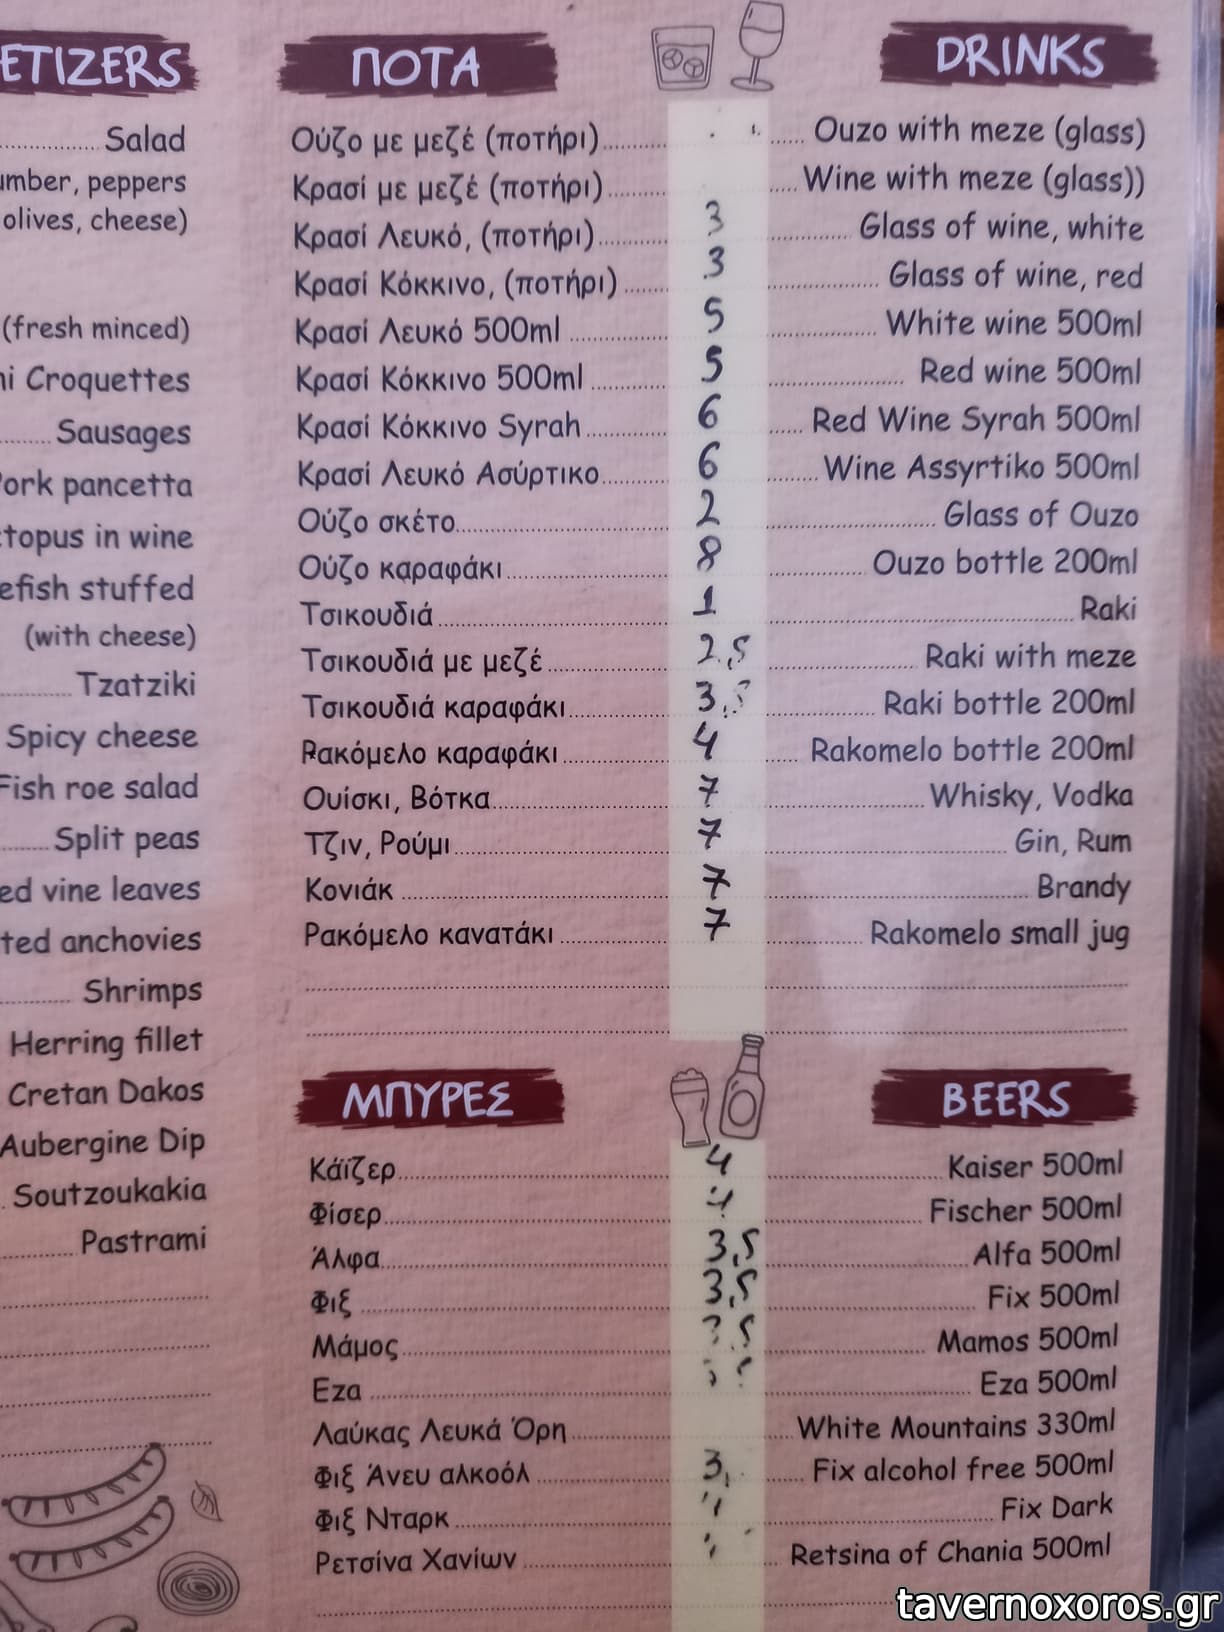 ETIZERS
Salad
umber, peppers
olives, cheese)
(fresh minced)
ni Croquettes
Sausages
Pork pancetta
ctopus in wine
efish stuffed
(with cheese)
Tzatziki
Spicy cheese
Fish roe salad
Split peas
ed vine leaves
ted anchovies
Shrimps
Herring fillet
Cretan Dakos
Aubergine Dip
Soutzoukakia
Pastrami
ΠΟΤΑ DRINKS
Ούζο με μεζέ (ποτήρι) Ouzo with meze (glass)
Κρασί με μεζέ (ποτήρι) Wine with meze (glass))
Κρασί Λευκό, (ποτήρι) 3 Glass of wine, white
Κρασί Κόκκινο, (ποτήρι) 3 Glass of wine, red
Κρασί Λευκό 500ml 5 White wine 500ml
Κρασί Κόκκινο 500ml 5 Red wine 500ml
Κρασί Κόκκινο Syrah 6 Red Wine Syrah 500ml
Κρασί Λευκό Ασύρτικο 6 Wine Assyrtiko 500ml
Ούζο σκέτο 2 Glass of Ouzo
Ούζο καραφάκι 8 Ouzo bottle 200ml
Τσικουδιά 1 Raki
Τσικουδιά με μεζέ 2,5 Raki with meze
Τσικουδιά καραφάκι 3,5 Raki bottle 200ml
Ρακόμελο καραφάκι 4 Rakomelo bottle 200ml
Ουίσκι, Βότκα 7 Whisky, Vodka
Τζιν, Ρούμι 7 Gin, Rum
Κονιάκ 7 Brandy
Ρακόμελο κανατάκι 7 Rakomelo small jug
ΜΠΥΡΕΣ BEERS
Κάϊζερ 4 Kaiser 500ml
Φίσερ 4 Fischer 500ml
Άλφα 3,5 Alfa 500ml
Φιξ 3,5 Fix 500ml
Μάμος Mamos 500ml
Εza Eza 500ml
Λαύκας Λευκά Όρη White Mountains 330ml
Φιξ Άνευ αλκοόλ 3, Fix alcohol free 500ml
Φιξ Νταρκ Fix Dark
Ρετσίνα Χανίων Retsina of Chania 500ml
tavernoxoros.gr